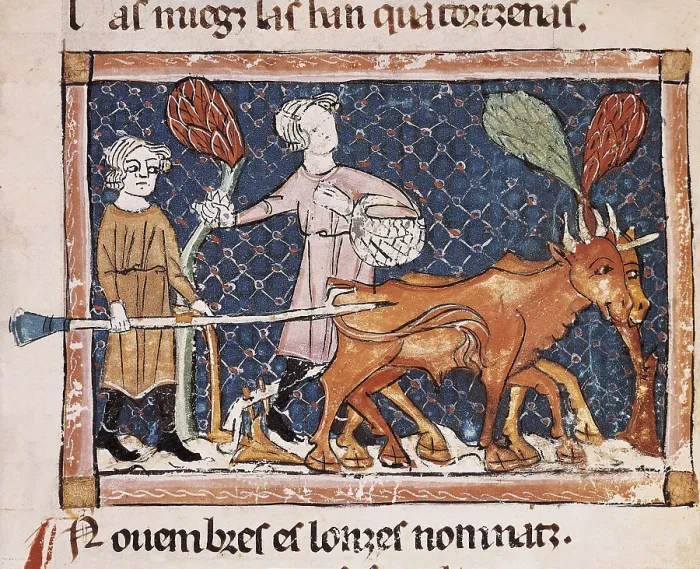 as nuegz las han quatorzenas.
Nouembres es lonzes nominatz.